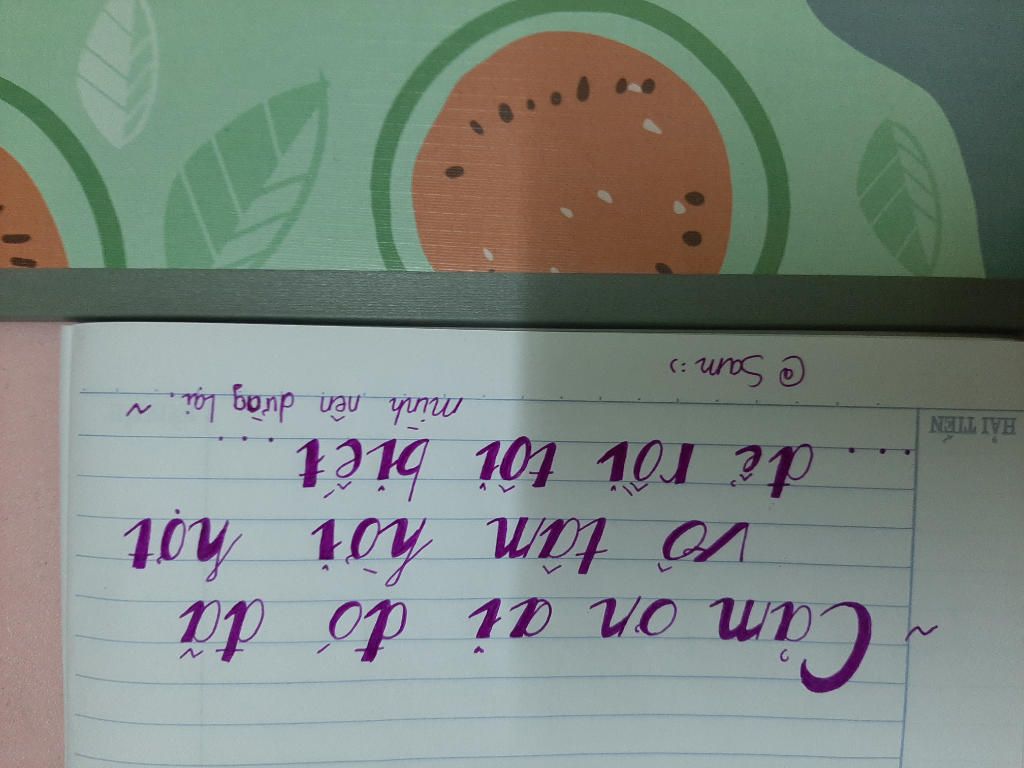 ~ Cảm ơn ai đó đã
vô tâm hời hợt
... để rồi tôi biết ...
mình nên dừng lại. ~
@ Sam :)
HẢI TIẾN